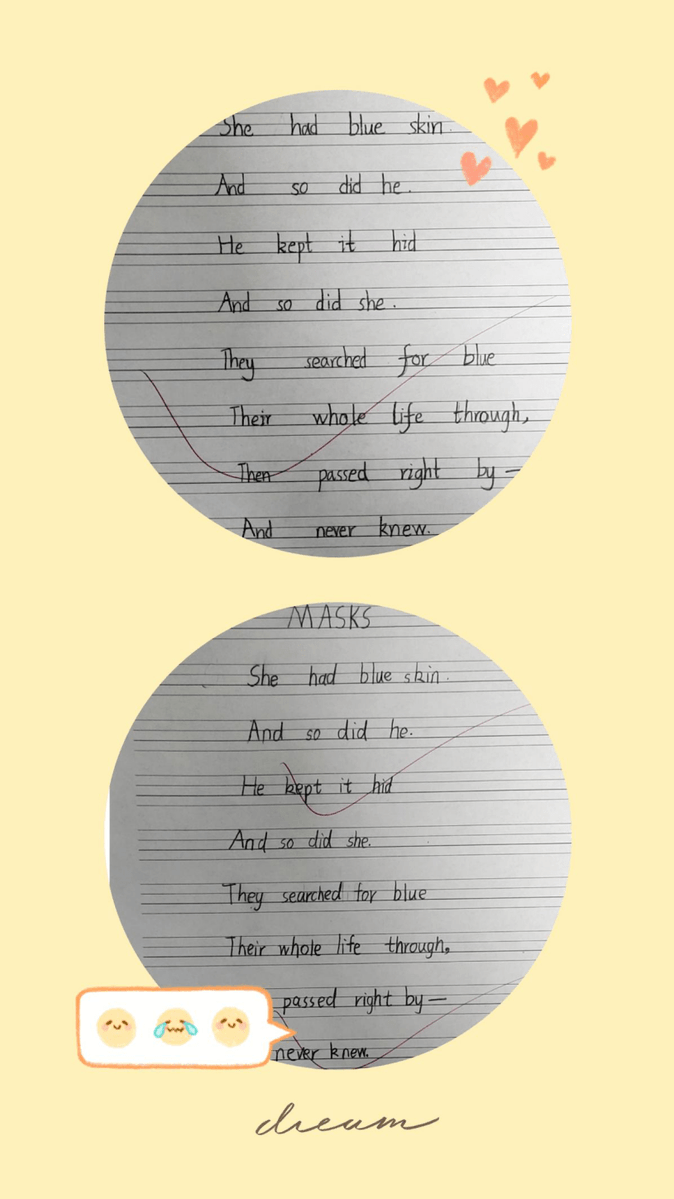 She had blue skin.
And so did he.
He kept it hid
And so did she.
They searched for blue
Their whole life through,
Then passed right by—
And never knew.
MASKS
She had blue skin.
And so did he.
He kept it hid
And so did she.
They searched for blue
Their whole life through,
passed right by—
never knew.
dream